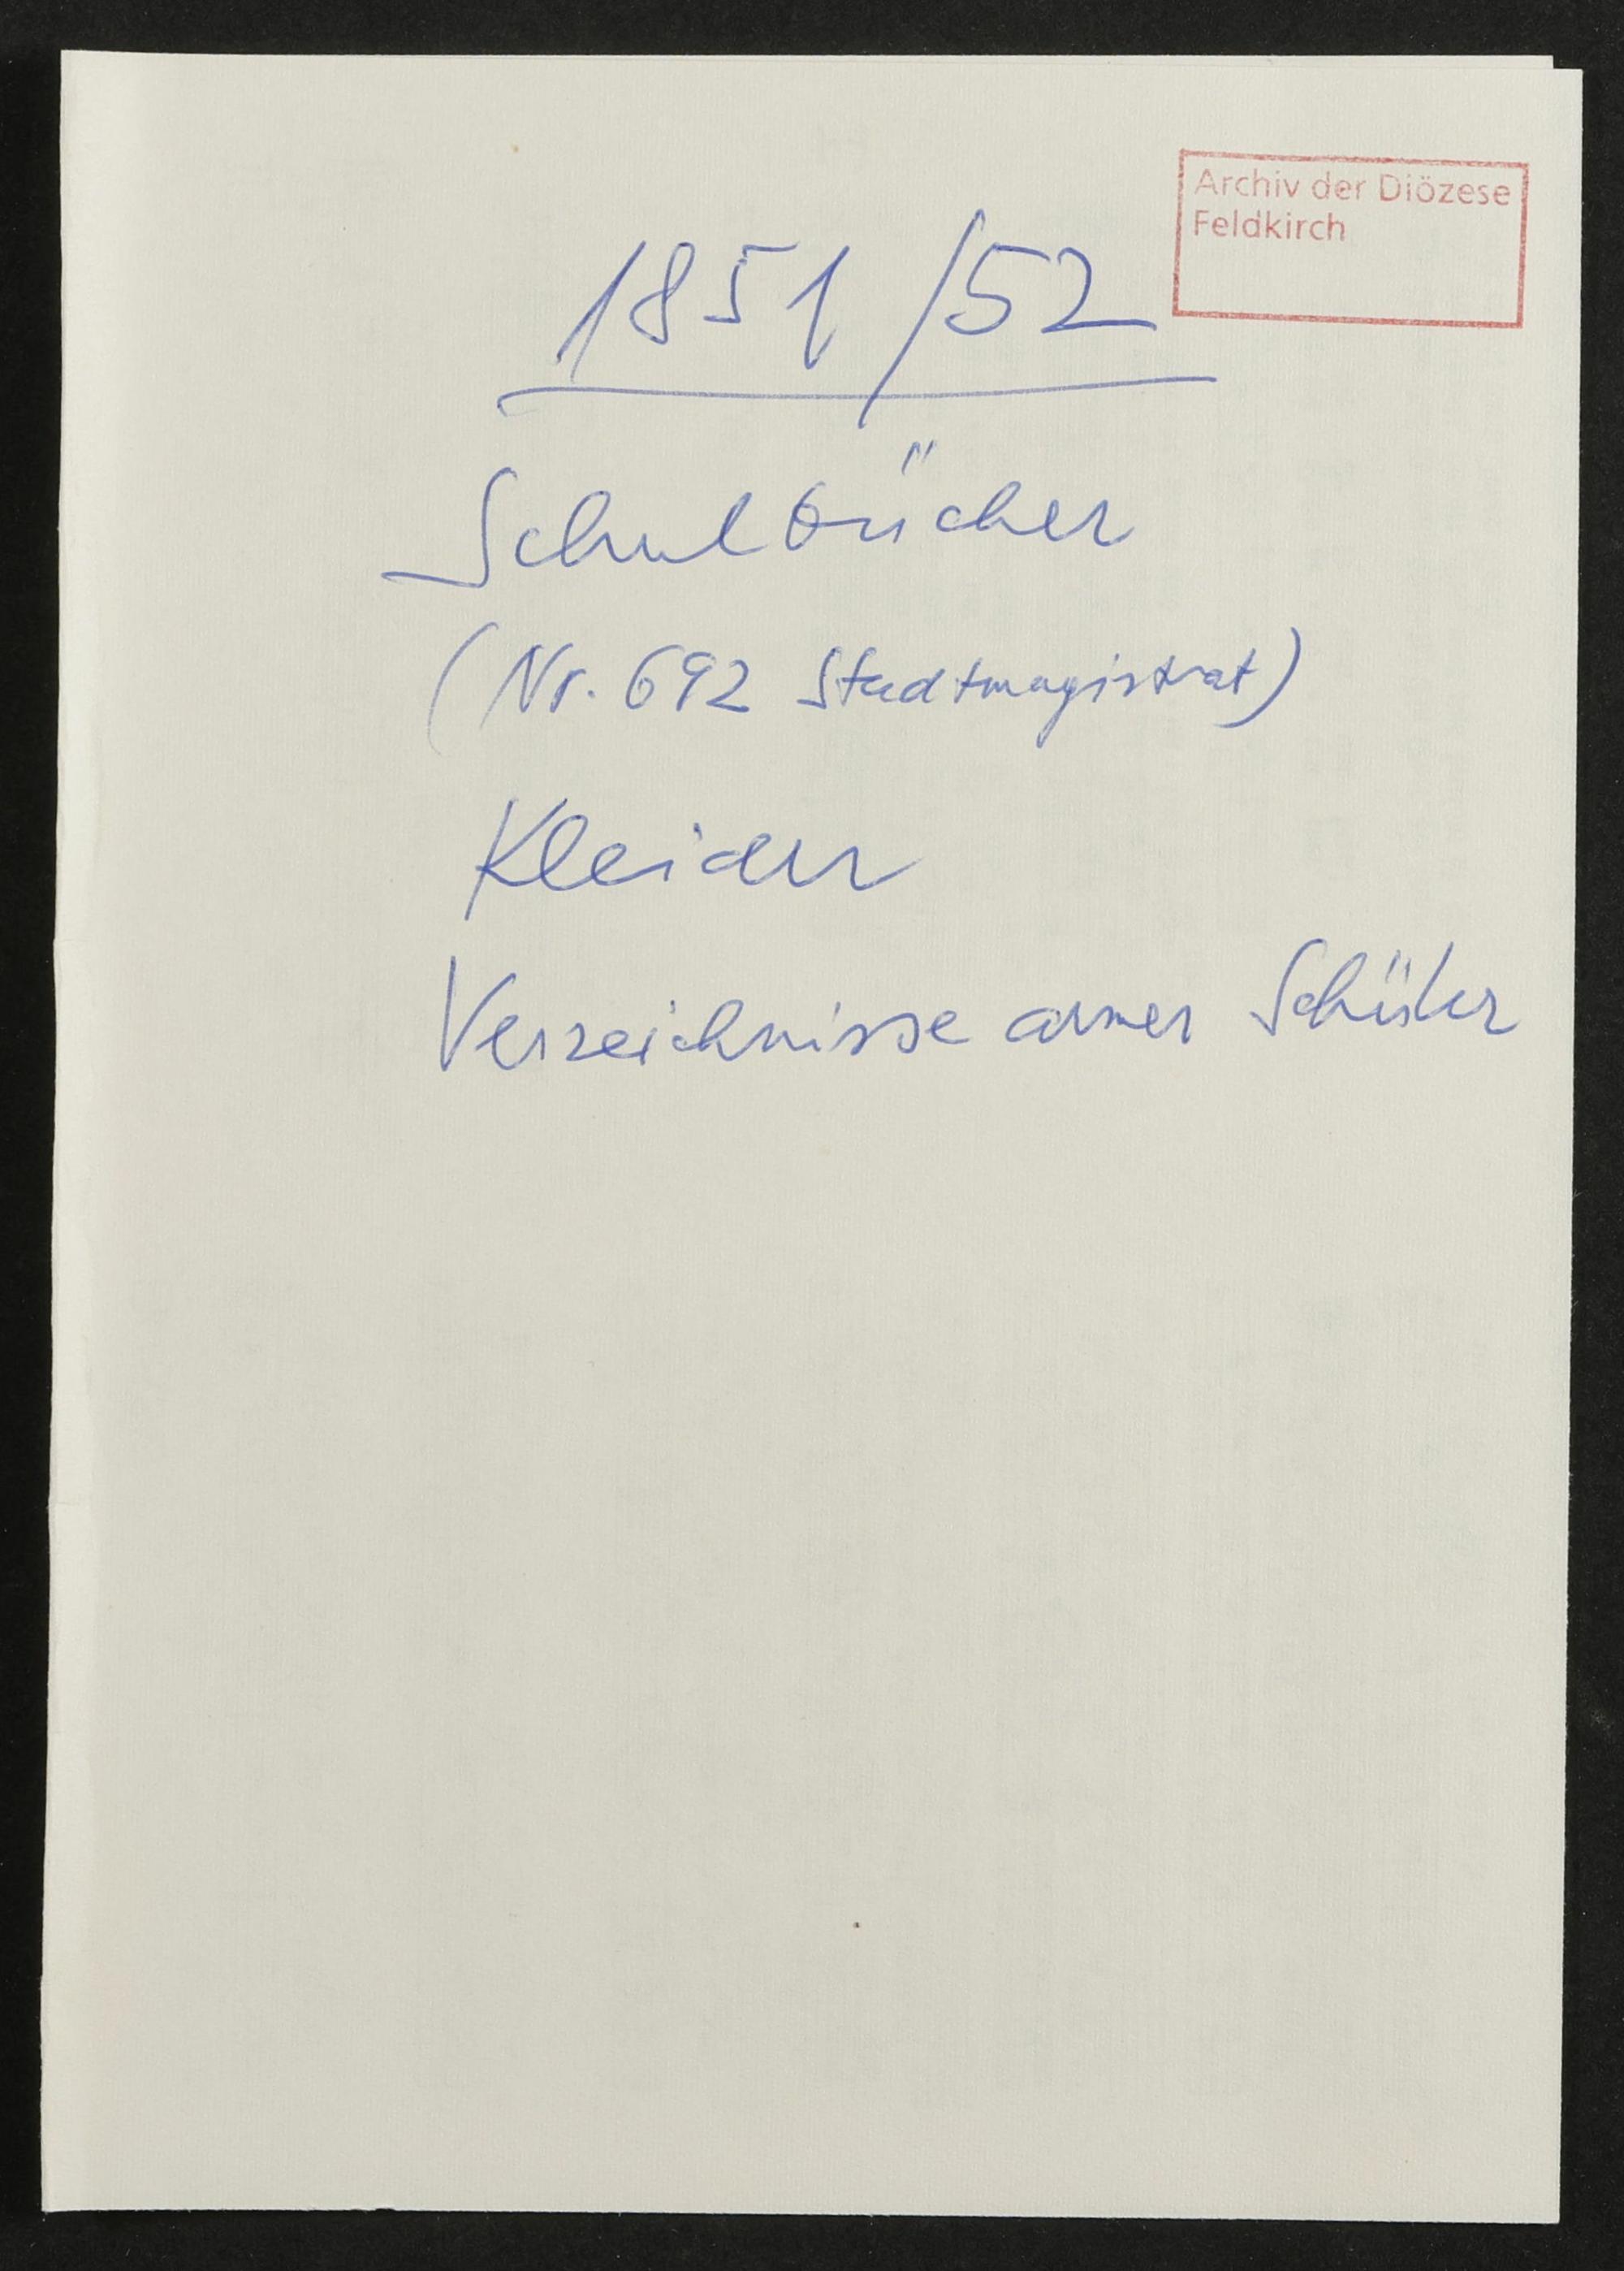 Archiv der Diözese
Feldkirch
1851/52
Schulbücher
(Nr. 692 Stadtmagistrat)
Kleider
Verzeichnisse armer Schüler